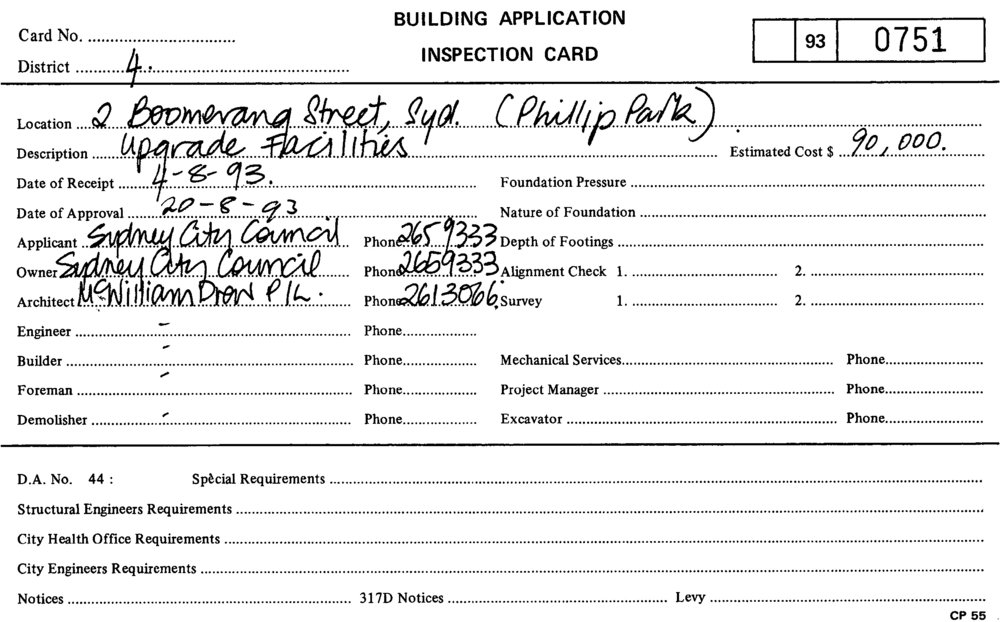 BUILDING APPLICATION
INSPECTION CARD
Card No.
District 4.
93 0751
Location 2 Boomerang Street, Syd. (Phillip Park)
Description Upgrade Facilities Estimated Cost $ 90,000.
Date of Receipt 4-8-93. Foundation Pressure
Date of Approval 20-8-93 Nature of Foundation
Applicant Sydney City Council Phone 2659333 Depth of Footings
Owner Sydney City Council Phone 2659333 Alignment Check 1. 2.
Architect McWilliam Drew P/L. Phone 2613066 Survey 1. 2.
Engineer - Phone
Builder - Phone Mechanical Services Phone
Foreman - Phone Project Manager Phone
Demolisher - Phone Excavator Phone
D.A. No. 44 : Special Requirements
Structural Engineers Requirements
City Health Office Requirements
City Engineers Requirements
Notices 317D Notices Levy
CP 55